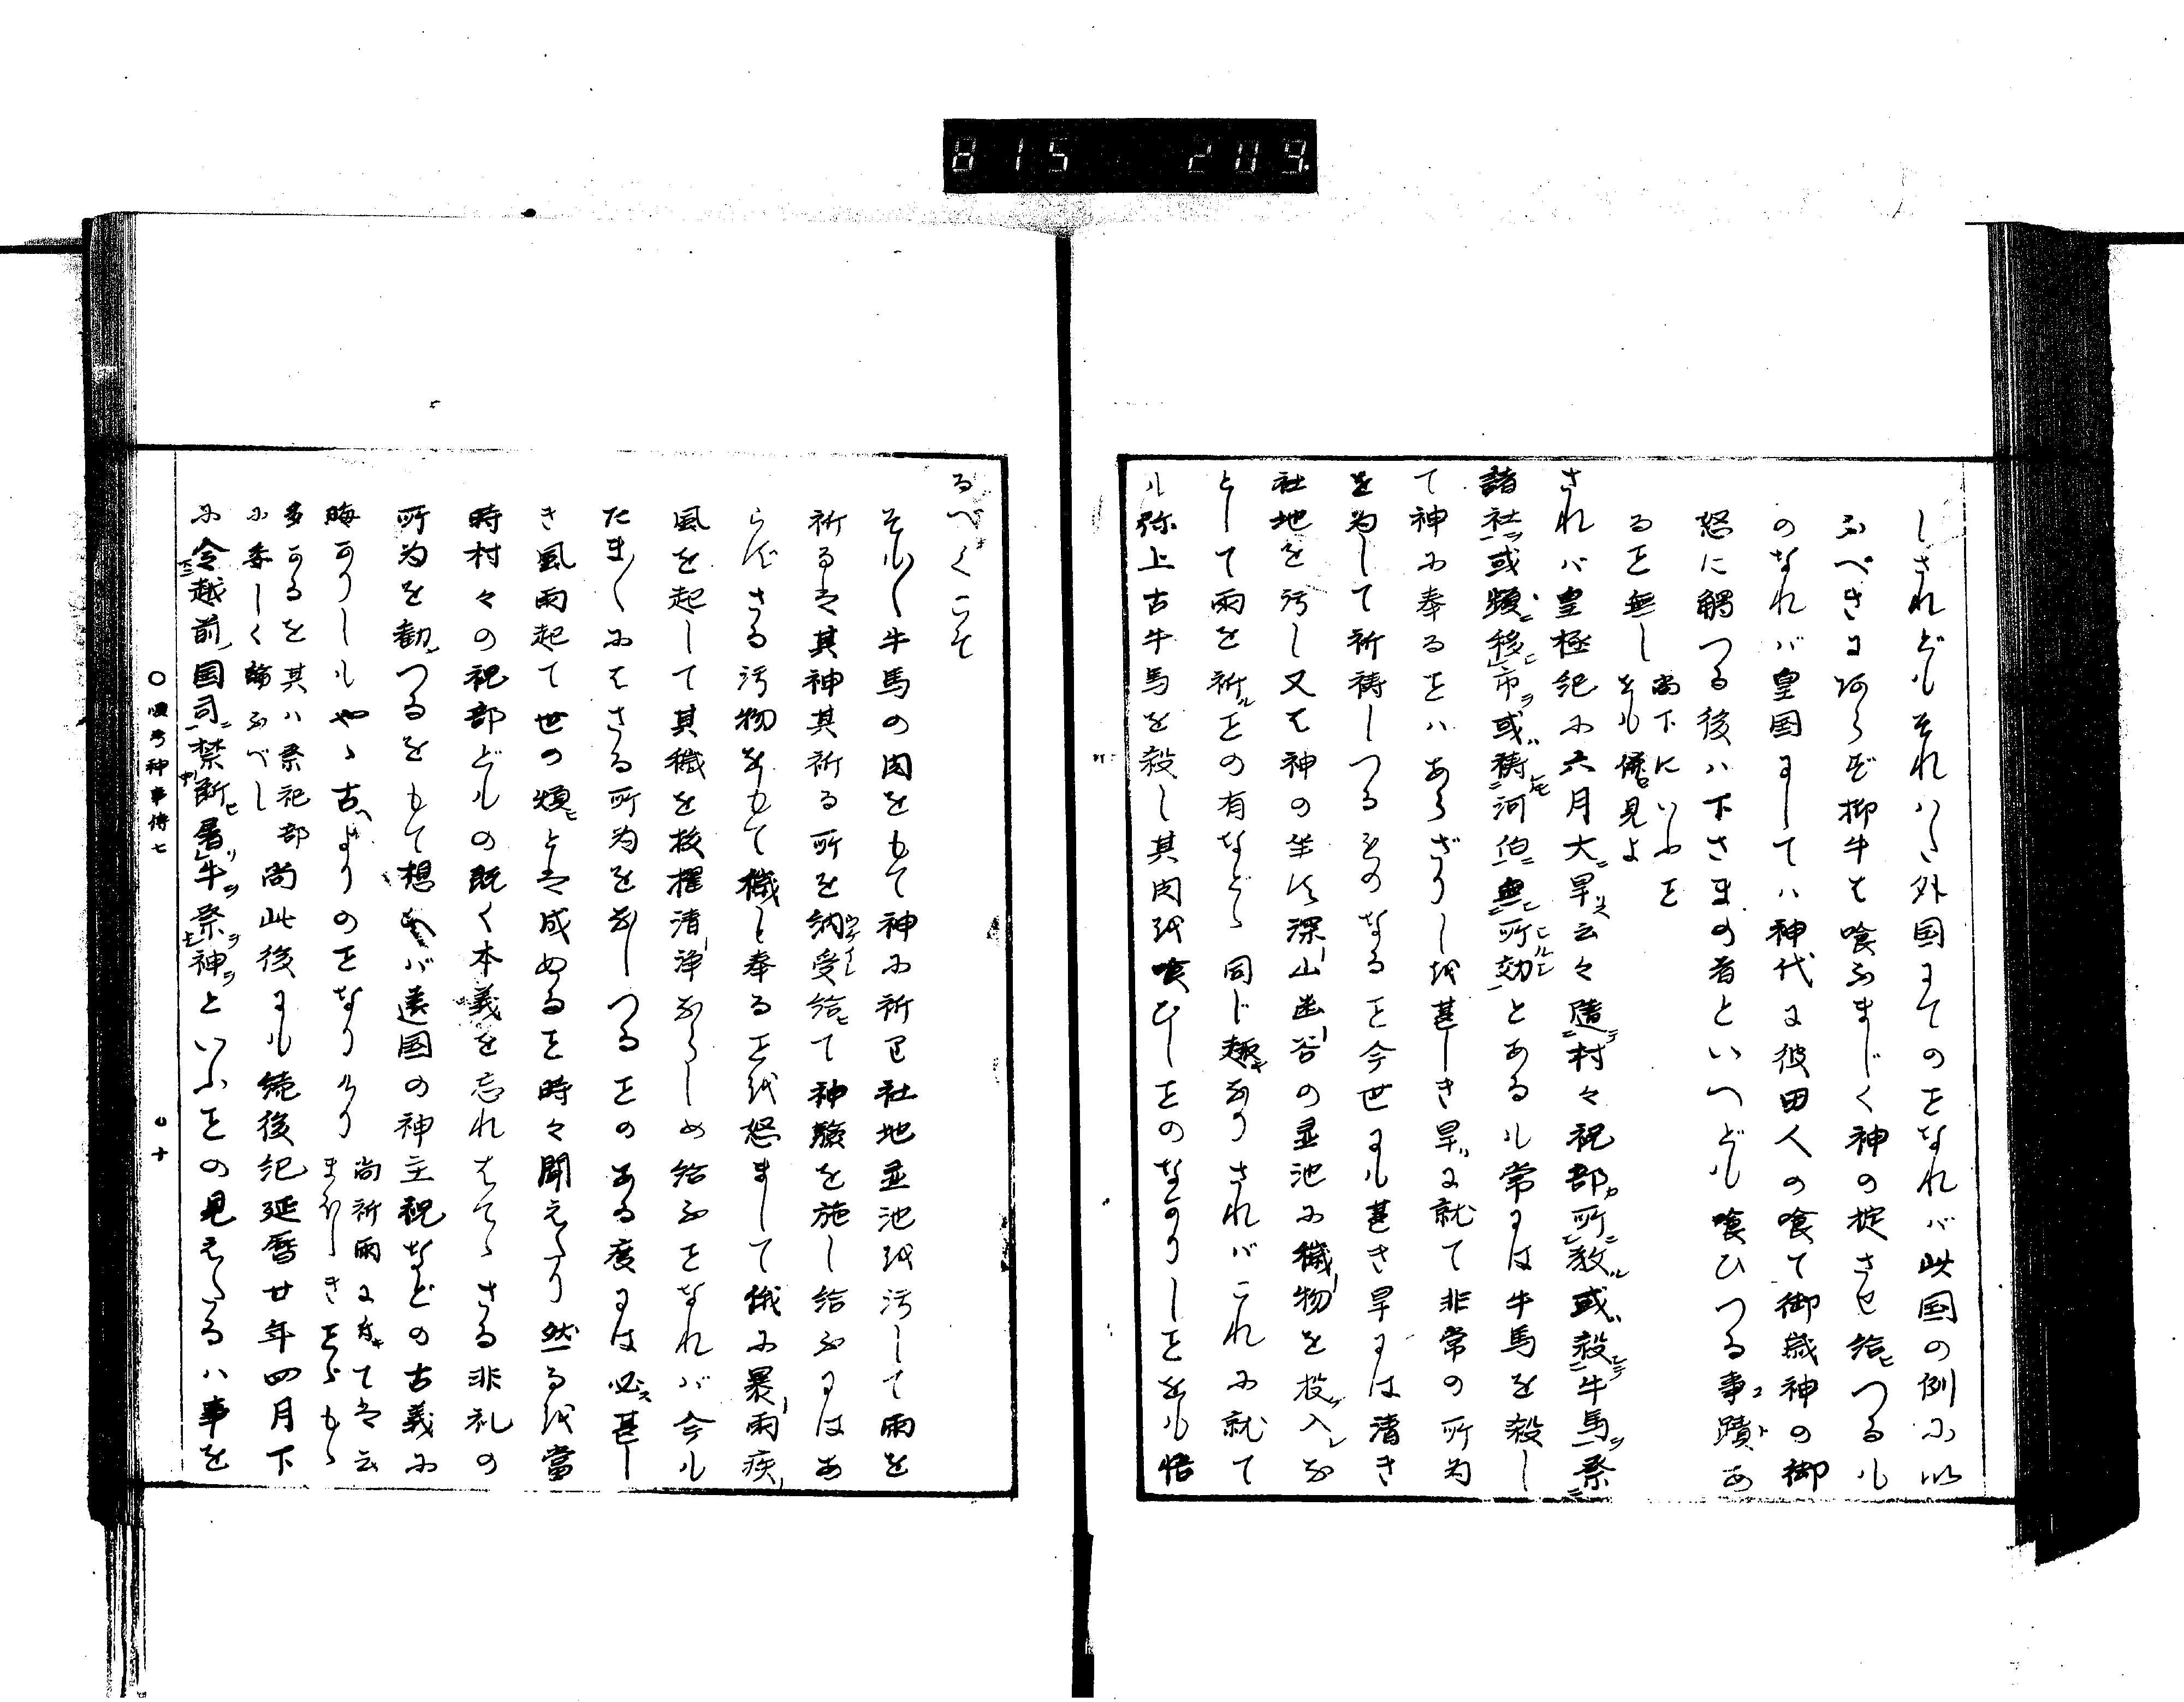 815 209.
しされどもそれハ〻外国にてのヿなれバ此国の例に以
ふべきに阿らず抑牛は喰ふまじく神の掟させ給ヒつるも
のなれバ皇国にしてハ神代に彼田人の喰て御歳神の御
怒に觸つる後ハ下ざまの者といへども喰ひつる事蹟あ
るヿ無し
尚下にいふヿ
をも併見よ
されバ皇極紀に六月大旱云々随村々祝部所教或殺牛馬祭
諸社或頻移市或祷河伯無所効とあるも常には牛馬を殺し
て神に奉るヿハあらざりしを甚しき旱に就て非常の所為
を為して祈祷しつるものなるヿ今世にも甚き旱には清き
社地を汚し又は神の坐す深山幽谷の霊池に穢物を投入な
どして雨を祈ルヿの有など同じ趣なりされバこれに就て
も弥上古牛馬を殺し其肉を喰ひしヿのなかりしヿをも悟
るべくこそ
そも〱牛馬の肉をもて神に祈り社地霊池を汚して雨を
祈るは其神其祈る所を納受給ヒて神験を施し給ふにはあ
らずさる汚物をもて穢し奉るヿを怒まして俄に暴雨疾
風を起して其穢を棭擢清浄ならしめ給ふヿなれバ今も
たま〱にはさる所為をなしつるヿのある度には必ズ甚し
き風雨起て世の煩ヒとは成ぬるヿ時々聞えたり然るを當
時村々の祝部どもの既く本義を忘れはてゝさる非礼の
所為を勸つるをもて想へバ遠国の神主祝などの古義に
晦かりしもやゝ古へよりのヿなりけり
尚祈雨になきては云
まほしきヿどもゝ
多かるを其ハ祭祀部
に委しく論ふべし
尚此後にも続後紀延暦廿年四月下
に令越前国司禁断屠牛祭神といふヿの見えたるハ事を
〇順考神事傳七
〇十